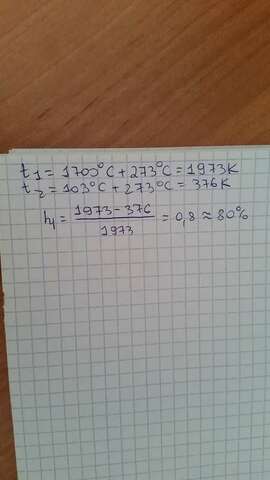 t1 = 1700°C + 273°C = 1973K
t2 = 103°C + 273°C = 376K
η = 1973 - 376 / 1973 = 0,8 ≈ 80%